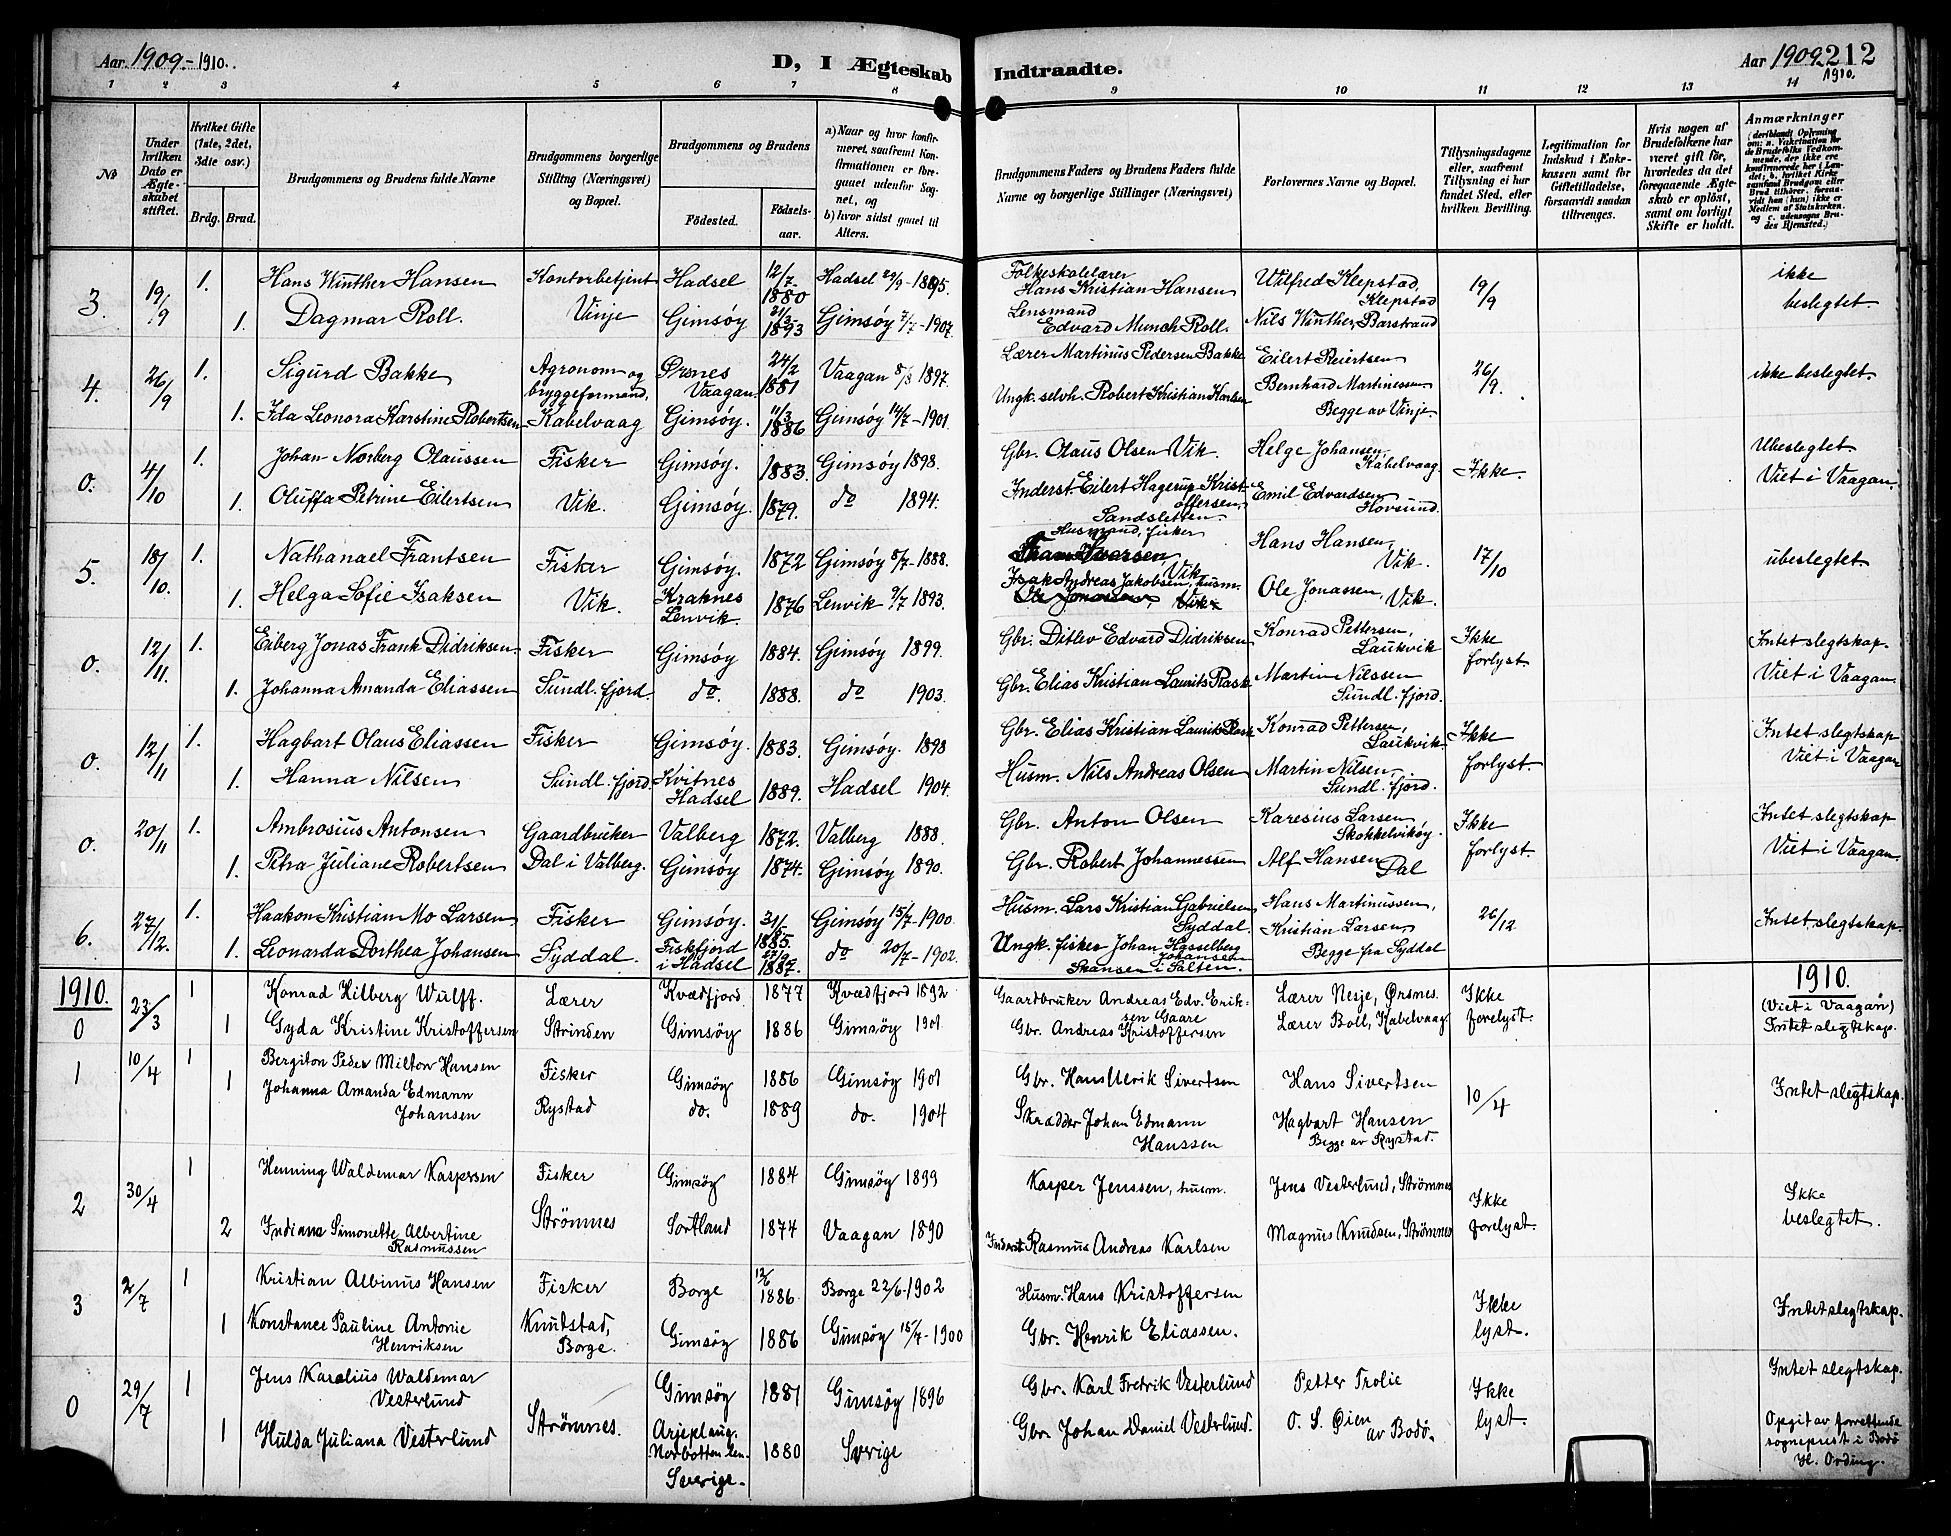 Aar 1909.-1910.
D, I Ægteskab
Indtraadte.
Aar 1909 212
1910.
1 2 3 4 5 6 7 8 9 10 11 12 13 14
No
Under hvilken Dato er Ægteskabet stiftet.
Hvilket Gifte (1ste, 2det, 3die osv.)
Brdg. Brud.
Brudgommens og Brudens fulde Navne
Brudgommens borgerlige Stilling (Næringsvei) og Bopæl.
Brudgommens og Brudens
Fødested. Fødselsaar.
a) Naar og hvor konfirmeret, saafremt Konfirmationen er foregaaet udenfor Sognet, og
b) hvor sidst gaaet til Alters.
Brudgommens Faders og Brudens Faders fulde Navne og borgerlige Stillinger (Næringsvei)
Forlovernes Navne og Bopæl.
Tillysningsdagene eller, saafremt Tillysning ei har fundet Sted, efter hvilken Bevilling.
Legitimation for Indskud i Enkekassen samt for Giftetilladelse, forsaavidt saadan tiltrænges.
Hvis nogen af Brudefolkene har været gift før, hvorledes da det foregaaende Ægteskab er opløst, samt om lovligt Skifte er holdt.
Anmærkninger
3. 19/9 1. Hans Winther Hansen Kontorbetjent Hadsel 12/7 1880 Hadsel 29/9-1895. Folkeskolelærer Hans Kristian Hansen Wilfred Klepstad, Klepstad 19/9 ikke beslegtet
1. Dagmar Roll. Vinje Gimsöy 21/3 1893 Gimsöy 7/7-1907. Lensmand Edvard Munch Roll. Nils Winther, Barstrand
4. 26/9 1. Sigurd Bakke Agronom og bryggeformand, Ørsnes Vaagan 24/2 1881 Vaagan 8/8 1897. Lærer Martinus Pedersen Bakke Eilert Reiertsen 26/9. ikke beslegtet.
1. Ida Leonora Karstine Robertsen Kabelvaag Gimsöy. 11/3 1886 Gimsöy 14/7-1901. Ungk. selvh. Robert Kristian Karlsen Bernhard Martinessen Begge av Vinje.
0. 4/10 1. Johan Norberg Olaussen Fisker Gimsöy. 1883. Gimsöy 1898. Gbr. Olaus Olsen Vik. Helge Johansen, Kabelvaag Ikke. Ubeslegtet
1. Oluffa Petrine Eilertsen Vik. Gimsöy. 1879. do 1894. Inderst. Eilert Hagerup Kristoffersen, Sandsletten. Emil Edvardsen Hovsund. Viet i Vaagan.
5. 18/10. 1. Nathanael Frantsen Fisker Gimsöy. 1872 Gimsöy 8/7-1888. Husmand, fisker Vik Hans Hansen, Vik. 17/10 ubeslegtet
1. Helga Sofie Isaksen Vik. Kraknes Lenvik. 1876 Lenvik 9/7 1893. Isak Andreas Jakobsen, husm. Ole Jonassen, Vik.
0. 12/11. 1. Eiberg Jonas Frank Didriksen Fisker Gimsöy 1884. Gimsöy 1899. Gbr. Ditlev Edvard Didriksen Konrad Pettersen, Laukvik Ikke forlyst Intet slegtskap.
1. Johanna Amanda Eliassen Sundl. fjord. do. 1888. do 1903. Gbr. Elias Kristian Laurits Rask Martin Nilssen Sundl. fjord. Viet i Vaagan.
0. 12/11 1. Hagbart Olaus Eliassen Fisker Gimsöy. 1883. Gimsöy. 1898 Gbr. Elias Kristian Laurits Rask Konrad Pettersen, Laukvik Ikke forlyst. Intet slegtskap
1. Hanna Nilsen Sundl. fjord Kvitnes Hadsel 1889. Hadsel 1904. Husm. Nils Andreas Olsen Martin Nilsen, Sundl. fjord. Viet i Vaagan
0. 20/11 1. Ambrosius Antonsen Gaardbruker Valberg 1872. Valberg 1888. Gbr. Anton Olsen Karesius Larsen Skokkelvikøy. Ikke forlyst. Intet slegtskap
1. Petra Juliane Robertsen Dal i Valberg. Gimsöy 1874. Gimsöy 1890. Gbr. Robert Johannessen Alf Hansen Dal Viet i Vaagan.
6. 27/12. 1. Haakon Kristian Mo Larsen Fisker Gimsöy. 31/5 1885. Gimsöy 15/7-1900. Husm. Lars Kristian Gabrielsen Syddal. Hans Martinussen, 26/12 Intet slegtskap
1. Leonarda Dorthea Johansen Syddal. Fiskfjord i Hadsel 27/9 1887. do 20/7-1902. Ungk. fisker Johan Hasselberg Johansen Skansen i Salten. Kristian Larsen, Begge fra Syddal
1910. 1910.
0 23/3 1 Konrad Kilberg Wulff. Lærer Kvædfjord 1877 Kvædfjord 1892 Gaardbruker Andreas Edv. Eriksen Gaare Lærer Nesje, Ørsnes. Ikke forelyst. (Viet i Vaagan)
1 Gyda Kristine Kristoffersen Strinden Gimsöy 1886 Gimsöy 1901 Gbr. Andreas Kristoffersen Lærer Boll, Kabelvaag Intet slegtskap.
1 10/4 1 Bergiton Peder Milton Hansen Fisker Gimsöy 1886 Gimsöy 1901 Gbr. Hans Ulrik Sivertsen Hans Sivertsen 10/4 Intet slegtskap.
1 Johanna Amanda Edmann Johansen Rystad do. 1889 do. 1904 Skrædder Johan Edmann Hanssen Hagbart Hansen Begge av Rystad.
2 30/4 1 Henning Waldemar Kaspersen Fisker Gimsöy 1884 Gimsöy 1899 Kasper Jenssen, husm. Jens Vesterlund, Strömnes Ikke forelyst. Ikke beslegtet.
2 Indiana Simonette Albertine Rasmussen Strömnes Sortland 1874 Vaagan 1890 Inderst Rasmus Andreas Karlsen Magnus Knudsen, Strömnes
3 2/7 1 Kristian Albinus Hansen Fisker Borge 12/6 1886 Borge 22/6-1902 Husm. Hans Kristoffersen Ikke lyst. Intet slegtskap.
1 Konstance Pauline Antonie Henriksen Knutstad, Borge. Gimsöy 1886 Gimsöy 15/7-1900 Gbr. Henrik Eliassen.
0 29/7 1 Jens Karelius Waldemar Vesterlund Gimsöy 1881 Gimsöy 1896 Gbr. Karl Fredrik Vesterlund Petter Trolie Ikke lyst. Intet slegtskap.
1 Hulda Juliana Vesterlund Strömnes. Arjeplaug. Norbotten len Sverige. 1880 Sverige Gbr. Johan Daniel Vesterlund. O. S. Øien av Bodø. Opgit av forrettende sogneprest i Bodø H. Ording.